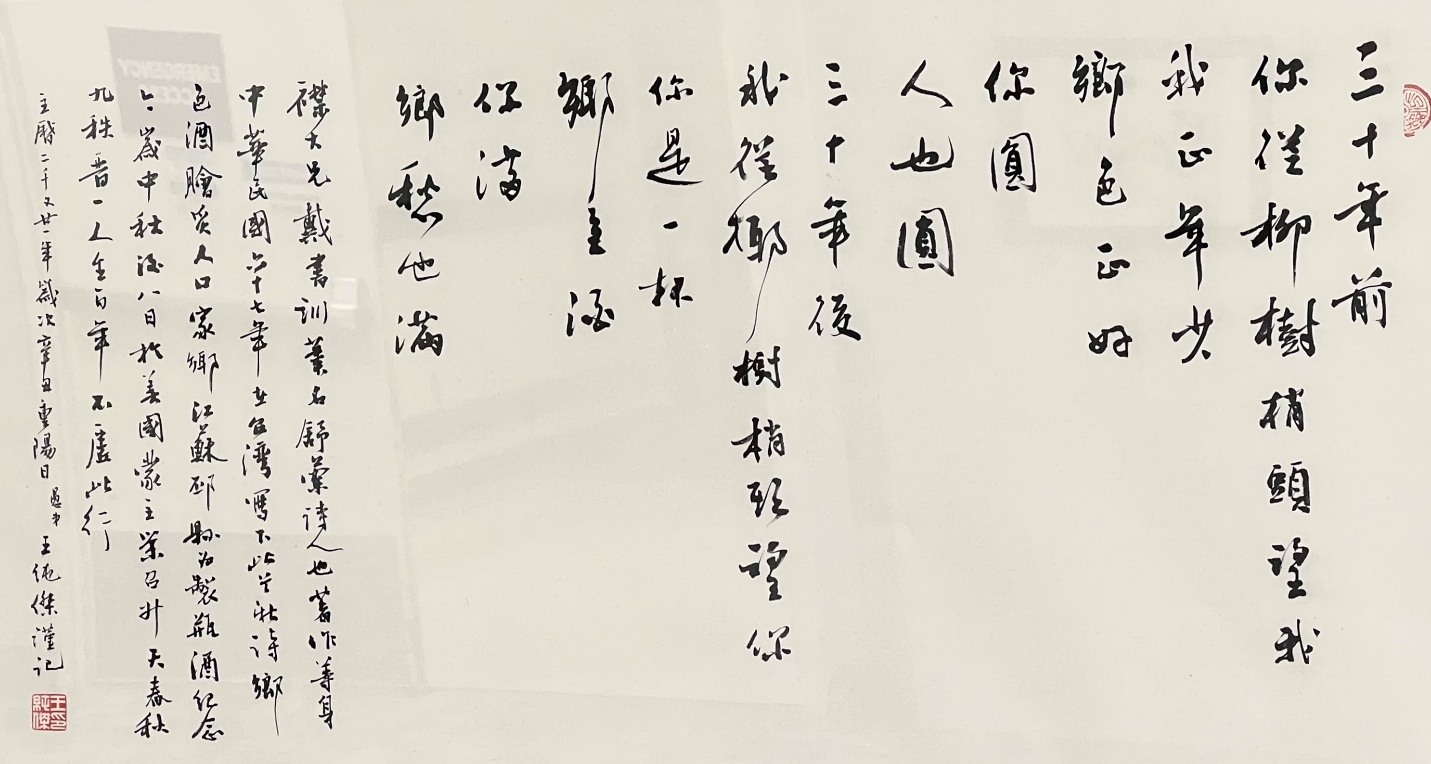 三十年前
你從柳樹梢頭望我
我正年少
鄉色正好
你圓
人也圓
三十年後
我從椰樹梢頭望你
你是一杯
鄉色酒
你滿
鄉愁也滿
襟大兄戴書訓筆名舒蘭詩人也著作等身
中華民國六十七年在台灣寫下此首新詩鄉
色酒膾炙人口家鄉江蘇邳縣為製瓶酒紀念
今歲中秋後八日於美國蒙主榮召升天春秋
九秩晋一人生百年不虛此行
主曆二千又廿一年歲次辛丑重陽日愚弟王純傑謹記
王印純傑
EMERGENCY